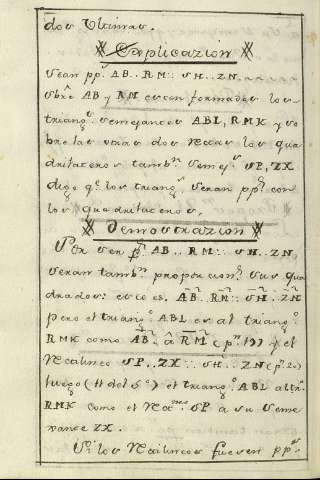 dos Ultimas.
※ Explicazion ※
Sean pp.s AB . RM :: SH . ZN.
Sbre AB y RM esten formados los
triang.s semejantes ABL, RMK y so
bre las otras dos rectas los qua
drilateros tamb.n semej.s SP, ZX
digo q.e los triang.s seran pp.s con
los quadrilateros.
※ Demostrazion ※
Por ser pp.s AB . RM :: SH . ZN,
seran tamb.n proporcion.s sus qua
drados: esto es, AB . RM :: SH . ZN
pero el triang.o ABL es al triang.o
RMK como AB a RM (p.n 19) y el
Rectilineo SP . ZX :: SH . ZN (p.n 20)
luego (11 del 5.o) el triang.o ABL al tri.o
RMK como el Rect.neo SP a su seme
xante ZX.
Si los Rectilineos fuesen pp.s